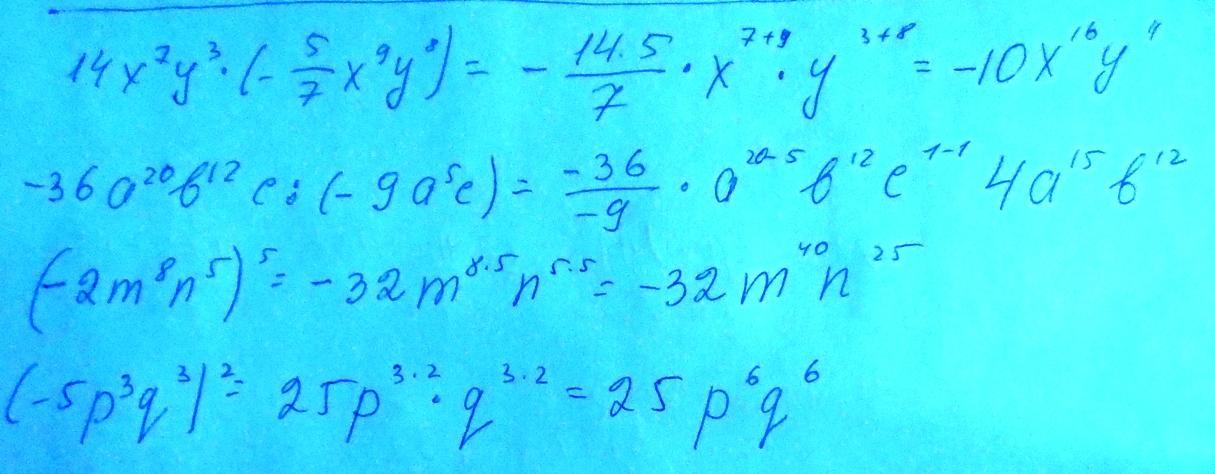 14x⁷y³·(-5/7x⁹y⁸) = -14·5/7·x⁷⁺⁹·y³⁺⁸ = -10x¹⁶y¹¹
-36a²⁰b¹²c:(-9a⁵c) = -36/-9·a²⁰⁻⁵b¹²c¹⁻¹ 4a¹⁵b¹²
(-2m⁸n⁵)⁵ = -32m⁸·⁵n⁵·⁵ = -32m⁴⁰n²⁵
(-5p³q³)² = 25p³·²·q³·² = 25p⁶q⁶